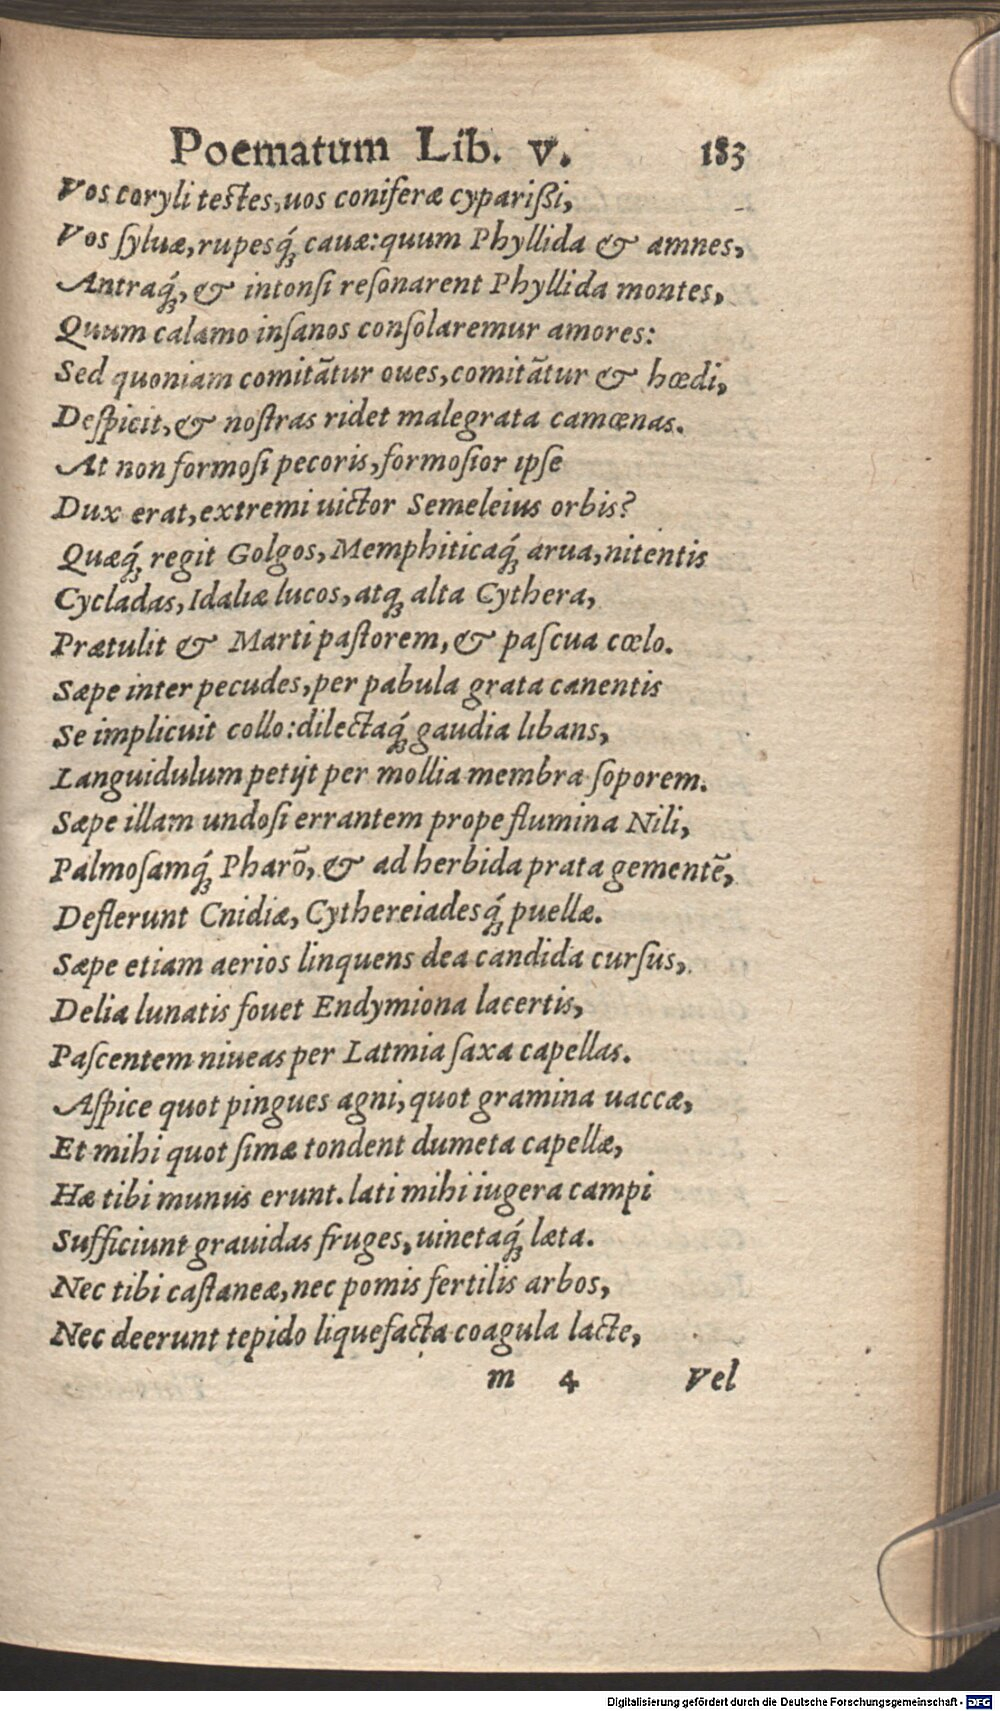 Poematum Lib. v. 183
Vos coryli testes, uos coniferæ cyparißi,
Vos ſyluæ, rupesq́ꝫ cauæ: quum Phyllida & amnes,
Antraq́ꝫ, & intonſi reſonarent Phyllida montes,
Quum calamo inſanos conſolaremur amores:
Sed quoniam comitātur oues, comitātur & hœdi,
Deſpicit, & noſtras ridet malegrata camœnas.
At non formoſi pecoris, formoſior ipſe
Dux erat, extremi uictor Semeleius orbis?
Quæq́ꝫ regit Golgos, Memphiticaq́ꝫ arua, nitentis
Cycladas, Idaliæ lucos, atqꝫ alta Cythera,
Prætulit & Marti paſtorem, & paſcua cœlo.
Sæpe inter pecudes, per pabula grata canentis
Se implicuit collo: dilectaq́ꝫ gaudia libans,
Languidulum petijt per mollia membra ſoporem.
Sæpe illam undoſi errantem prope flumina Nili,
Palmoſamq́ꝫ Pharō, & ad herbida prata gementē,
Deflerunt Cnidiæ, Cythereiadesq́ꝫ puellæ.
Sæpe etiam aerios linquens dea candida curſus,
Delia lunatis fouet Endymiona lacertis,
Paſcentem niueas per Latmia ſaxa capellas.
Aſpice quot pingues agni, quot gramina uaccæ,
Et mihi quot ſimæ tondent dumeta capellæ,
Hæ tibi munus erunt. lati mihi iugera campi
Sufficiunt grauidas fruges, uinetaq́ꝫ læta.
Nec tibi caſtaneæ, nec pomis fertilis arbos,
Nec deerunt tepido liquefacta coagula lacte,
m 4 Vel
Digitalisierung gefördert durch die Deutsche Forschungsgemeinschaft - DFG